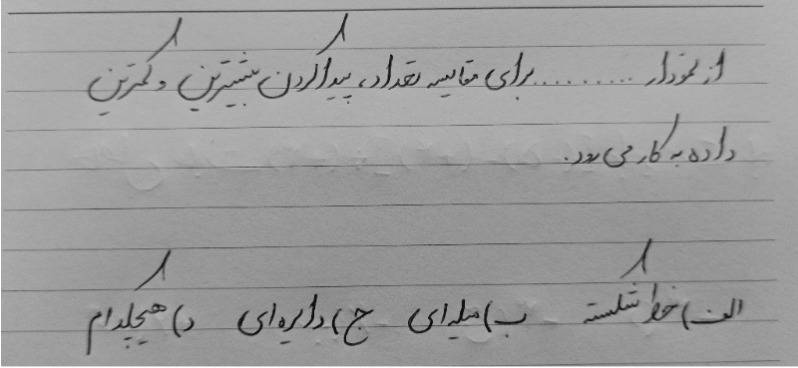 از نمودار .......... برای مقایسه تعداد، پیدا کردن بیشترین و کمترین
داده به کار می رود.
الف) خط شکسته ب) میله ای ج) دایره ای د) هیچکدام